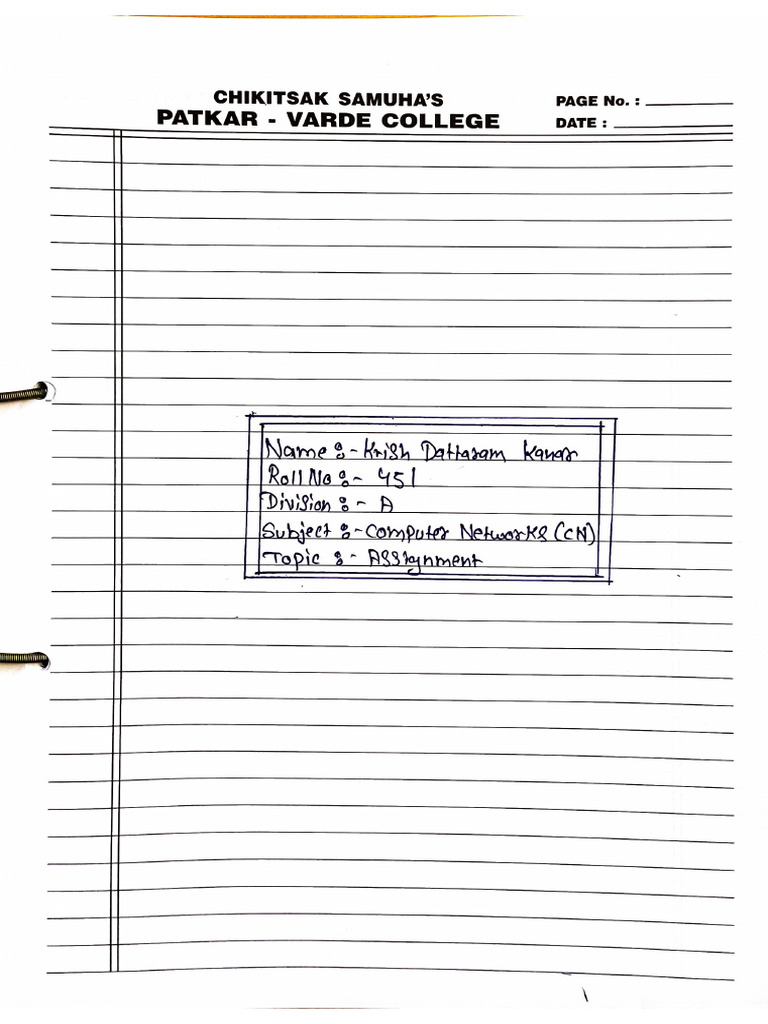 CHIKITSAK SAMUHA'S
PATKAR - VARDE COLLEGE
PAGE No. :
DATE :
Name :- Krish Dattaram Kanar
Roll No :- 451
Division :- A
Subject :- Computer Networks (CN)
Topic :- Assignment